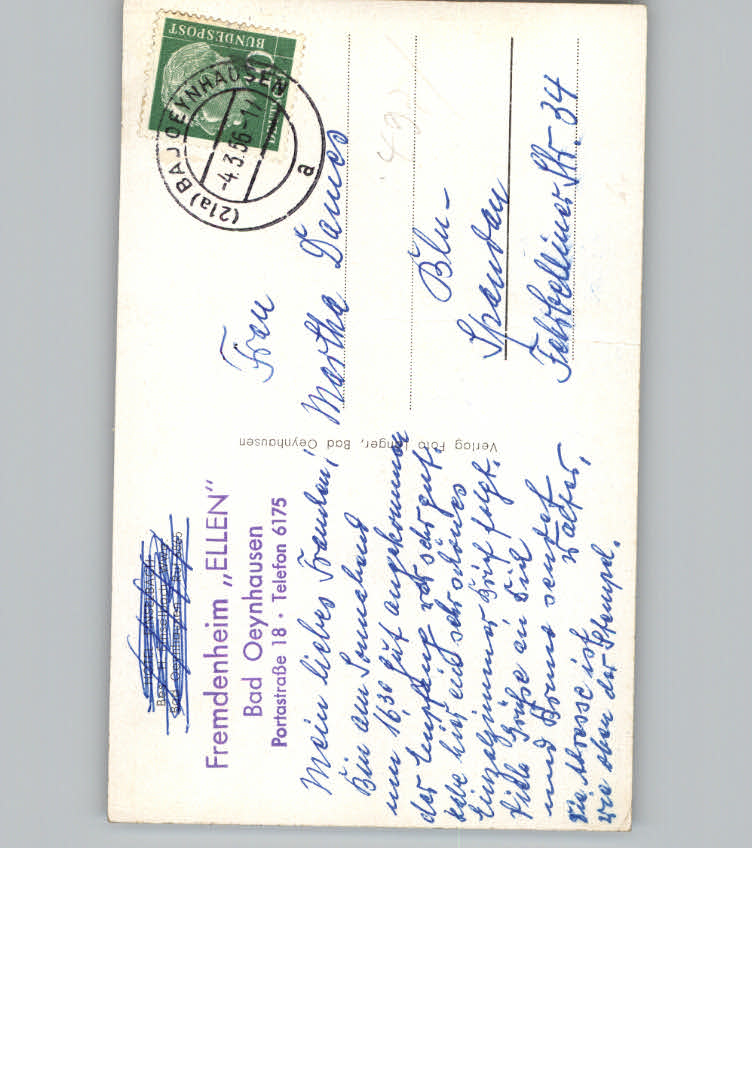 Fremdenheim „ELLEN“
Bad Oeynhausen
Portastraße 18 · Telefon 6175
Mein liebes Frauchen!
Bin am Sonnabend
um 16³⁰ gut angekommen
der Empfang war sehr gut.
habe hier ein sehr schönes
Einzelzimmer Brief folgt.
Viele Grüße an Dich
und Bruno sendet
Walter.
Die Adresse ist
wie oben der Stempel.
Verlag Foto Länger, Bad Oeynhausen
BUNDESPOST
(21a) BAD OEYNHAUSEN
-4.3.56-17
a
Frau
Martha
Bln-
Spandau
Fehrbelliner Str. 34